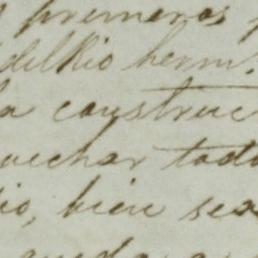 primeros
del Rio herm.
la construc
vechar todo
io, bien sea